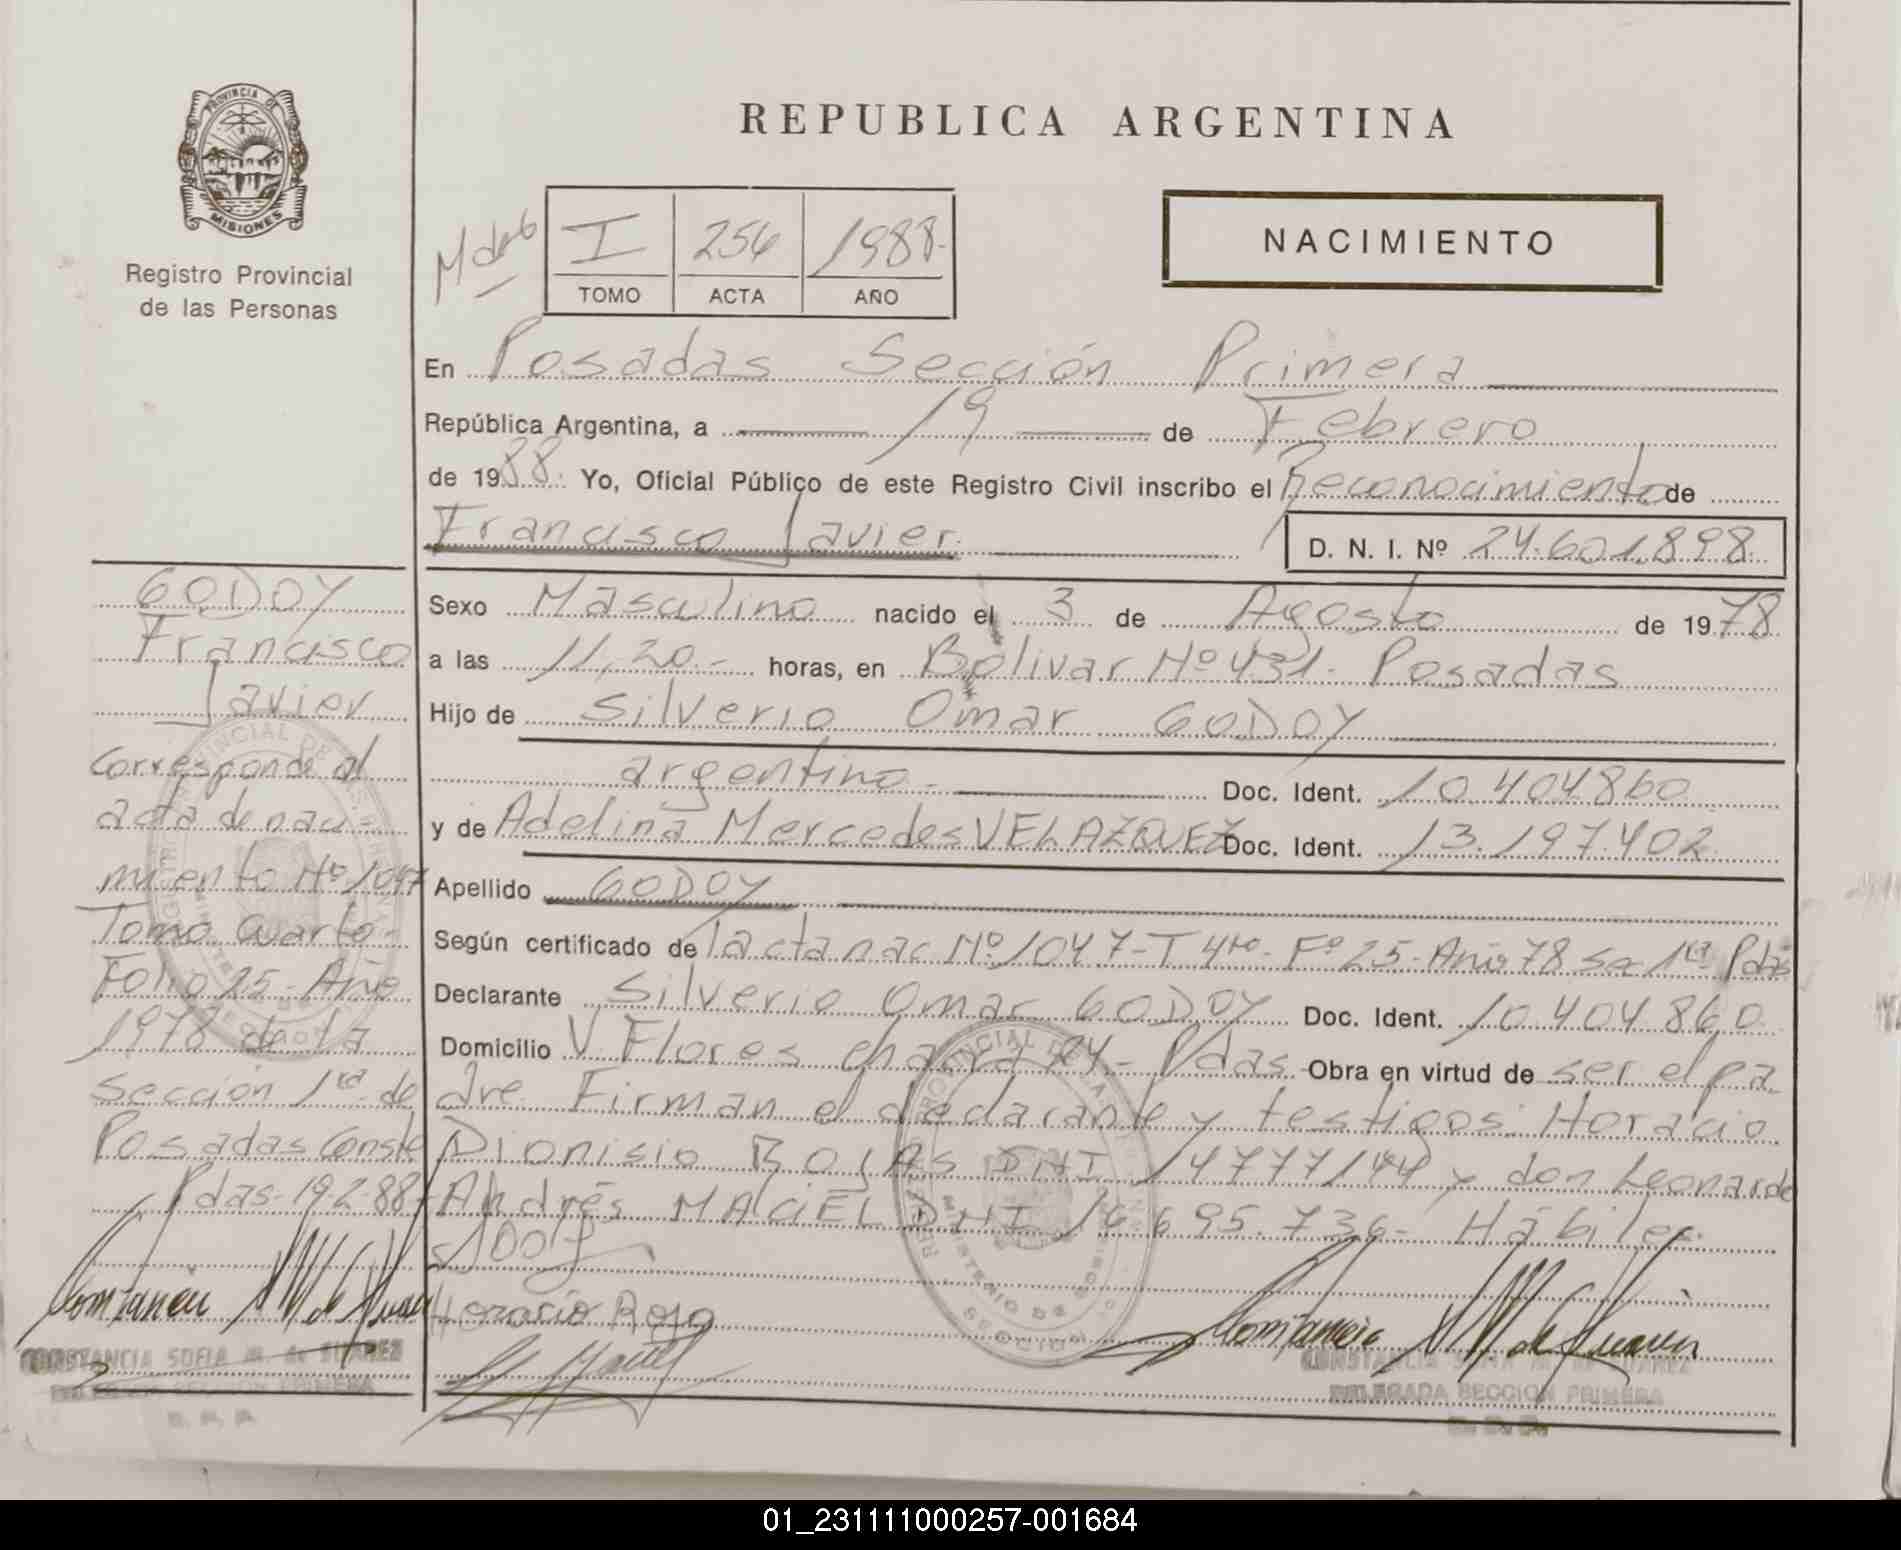 PROVINCIA DE
MISIONES
Registro Provincial
de las Personas
REPUBLICA ARGENTINA
I 256 1988.
TOMO ACTA AÑO
NACIMIENTO
En Posadas Sección Primera
República Argentina, a 19 de Febrero
de 1988. Yo, Oficial Público de este Registro Civil inscribo el Reconocimiento de
Francisco Javier.
D. N. I. Nº 24.601.898.
Sexo Masculino nacido el 3 de Agosto de 1978
a las 11,20.- horas, en Bolivar Nº 431. Posadas
Hijo de Silverio Omar GODOY
argentino. Doc. Ident. 10.404.860
y de Adelina Mercedes VELAZQUEZ Doc. Ident. 13.197.402
Apellido GODOY
Según certificado de acta nac Nº 1047-T 4to- Fº 25-Año 78 Sec 1ra Pdas
Declarante Silverio Omar GODOY Doc. Ident. 10.404.860
Domicilio V. Flores chacra Pdas Obra en virtud de ser el pa
dre Firman el declarante y testigos: Horacio
Dionisio ROJAS DNI 14777144 y don Leonardo
Andrés MACIEL DNI 16695.736- Hábiles.
Horacio Rojo
GODOY
Francisco
Javier
Corresponde al
acta de naci
miento Nº 1047
Tomo cuarto-
Folio 25- Año
1978 de la
Sección 1ra. de
Posadas Conste
Pdas-19-2-88-
CONSTANCIA SOFIA M. de SUAREZ
DELEGADA SECCION PRIMERA
R. P. P.
CONSTANCIA SOFIA M. de SUAREZ
DELEGADA SECCION PRIMERA
R. P. P.
01_231111000257-001684